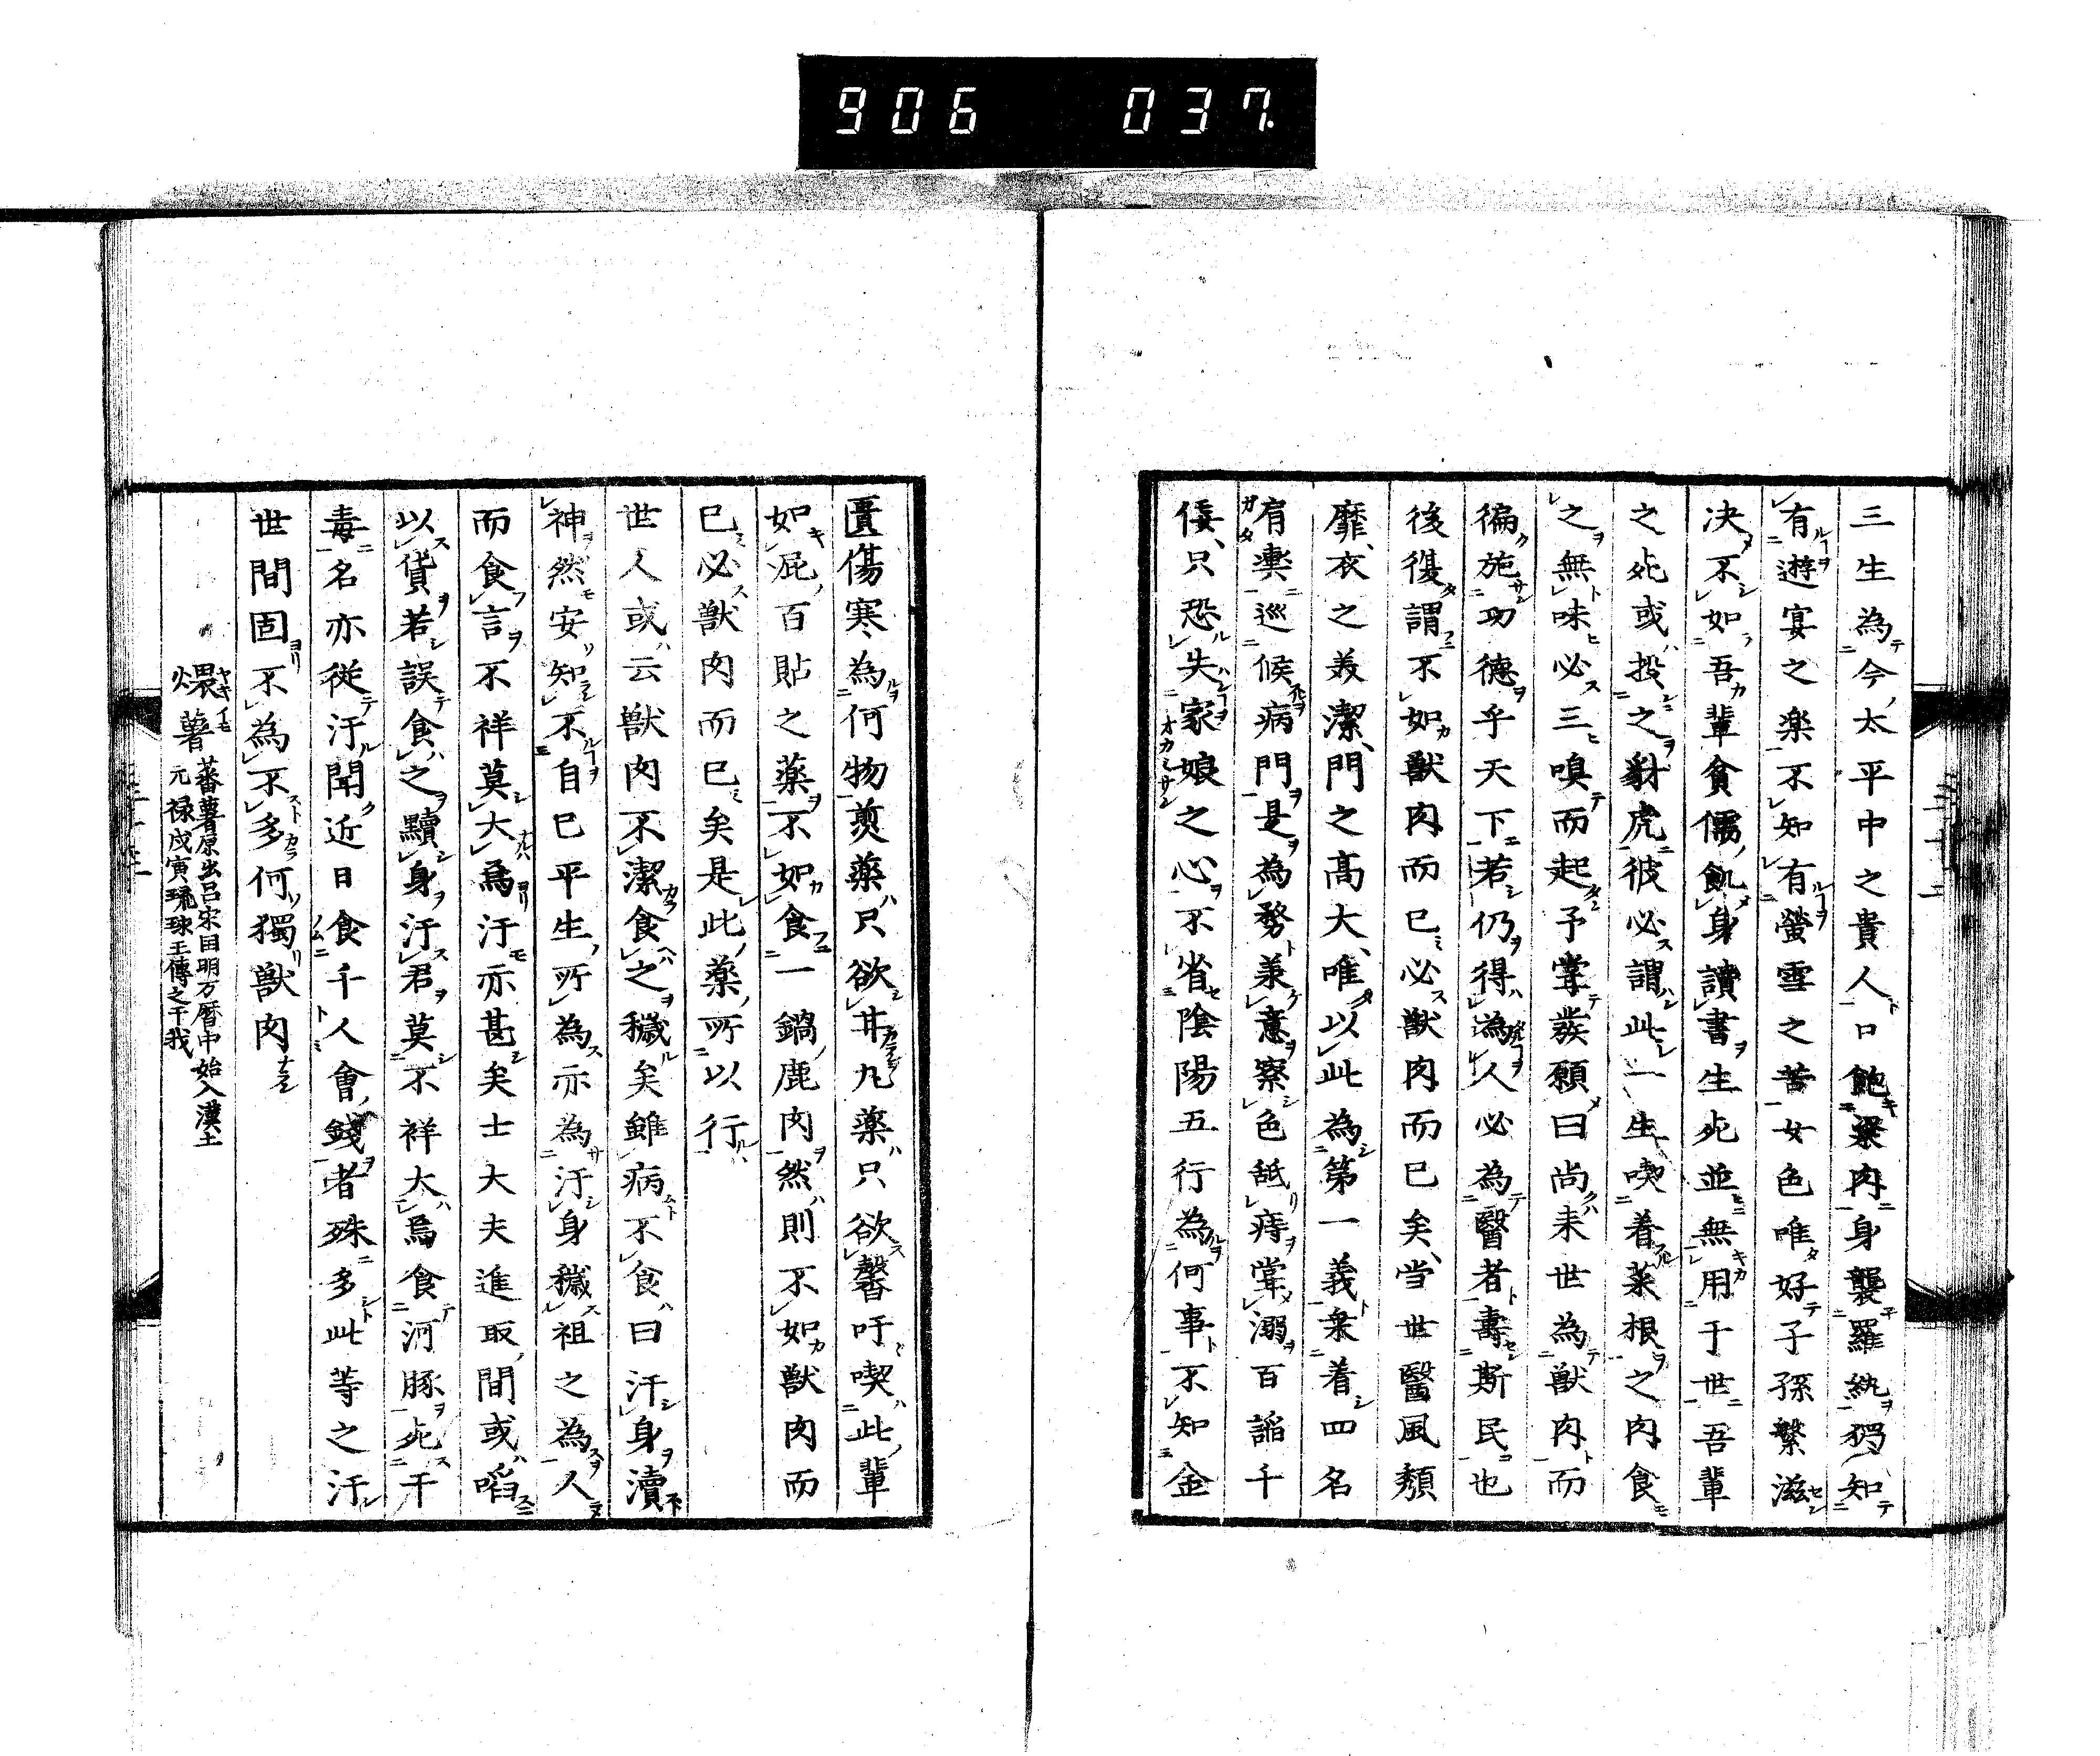 906 037.
三生為今太平中之貴人口飽粱肉身襲羅紈獨知
有遊宴之楽不知有螢雪之苦女色唯好子孫繁滋
決不如吾輩貧儒飢身讀書生死並無用于世吾輩
之死或投之豺虎彼必謂此一生喫着菜根之肉食
之無味必三嗅而起予掌發願曰尚来世為獣肉而
徧施功徳乎天下若仍得為人必為醫者壽斯民也
後復謂不如獣肉而已必獣肉而已矣当世醫風頽
靡衣之美潔門之高大唯以此為第一義衆着四名
肩輿巡候病門是為務兼意察色舐痔掌溺百謟千
倭只恐失家娘之心不省陰陽五行為何事不知金
匱傷寒為何物煎薬只欲甘丸薬只欲馨吁喫此輩
如屁百貼之薬不如食一鍋鹿肉然則不如獣肉而
已必獣肉而已矣是此薬所以行
世人或云獣肉不潔食之穢矣雖病不食曰汗身瀆
神然安知不自已平生所為亦為汙身穢祖之為人
而食言不祥莫大焉汙亦甚矣士大夫進取間或啗
以貨若誤食之黷身汙君莫不祥大焉食河豚死于
毒名亦従汙聞近日食千人會錢者殊多此等之汙
世間固不為不多何獨獣肉
煨薯 蕃薯原出呂宋国明万暦中始入漢土
元禄戊寅琉球王傳之于我